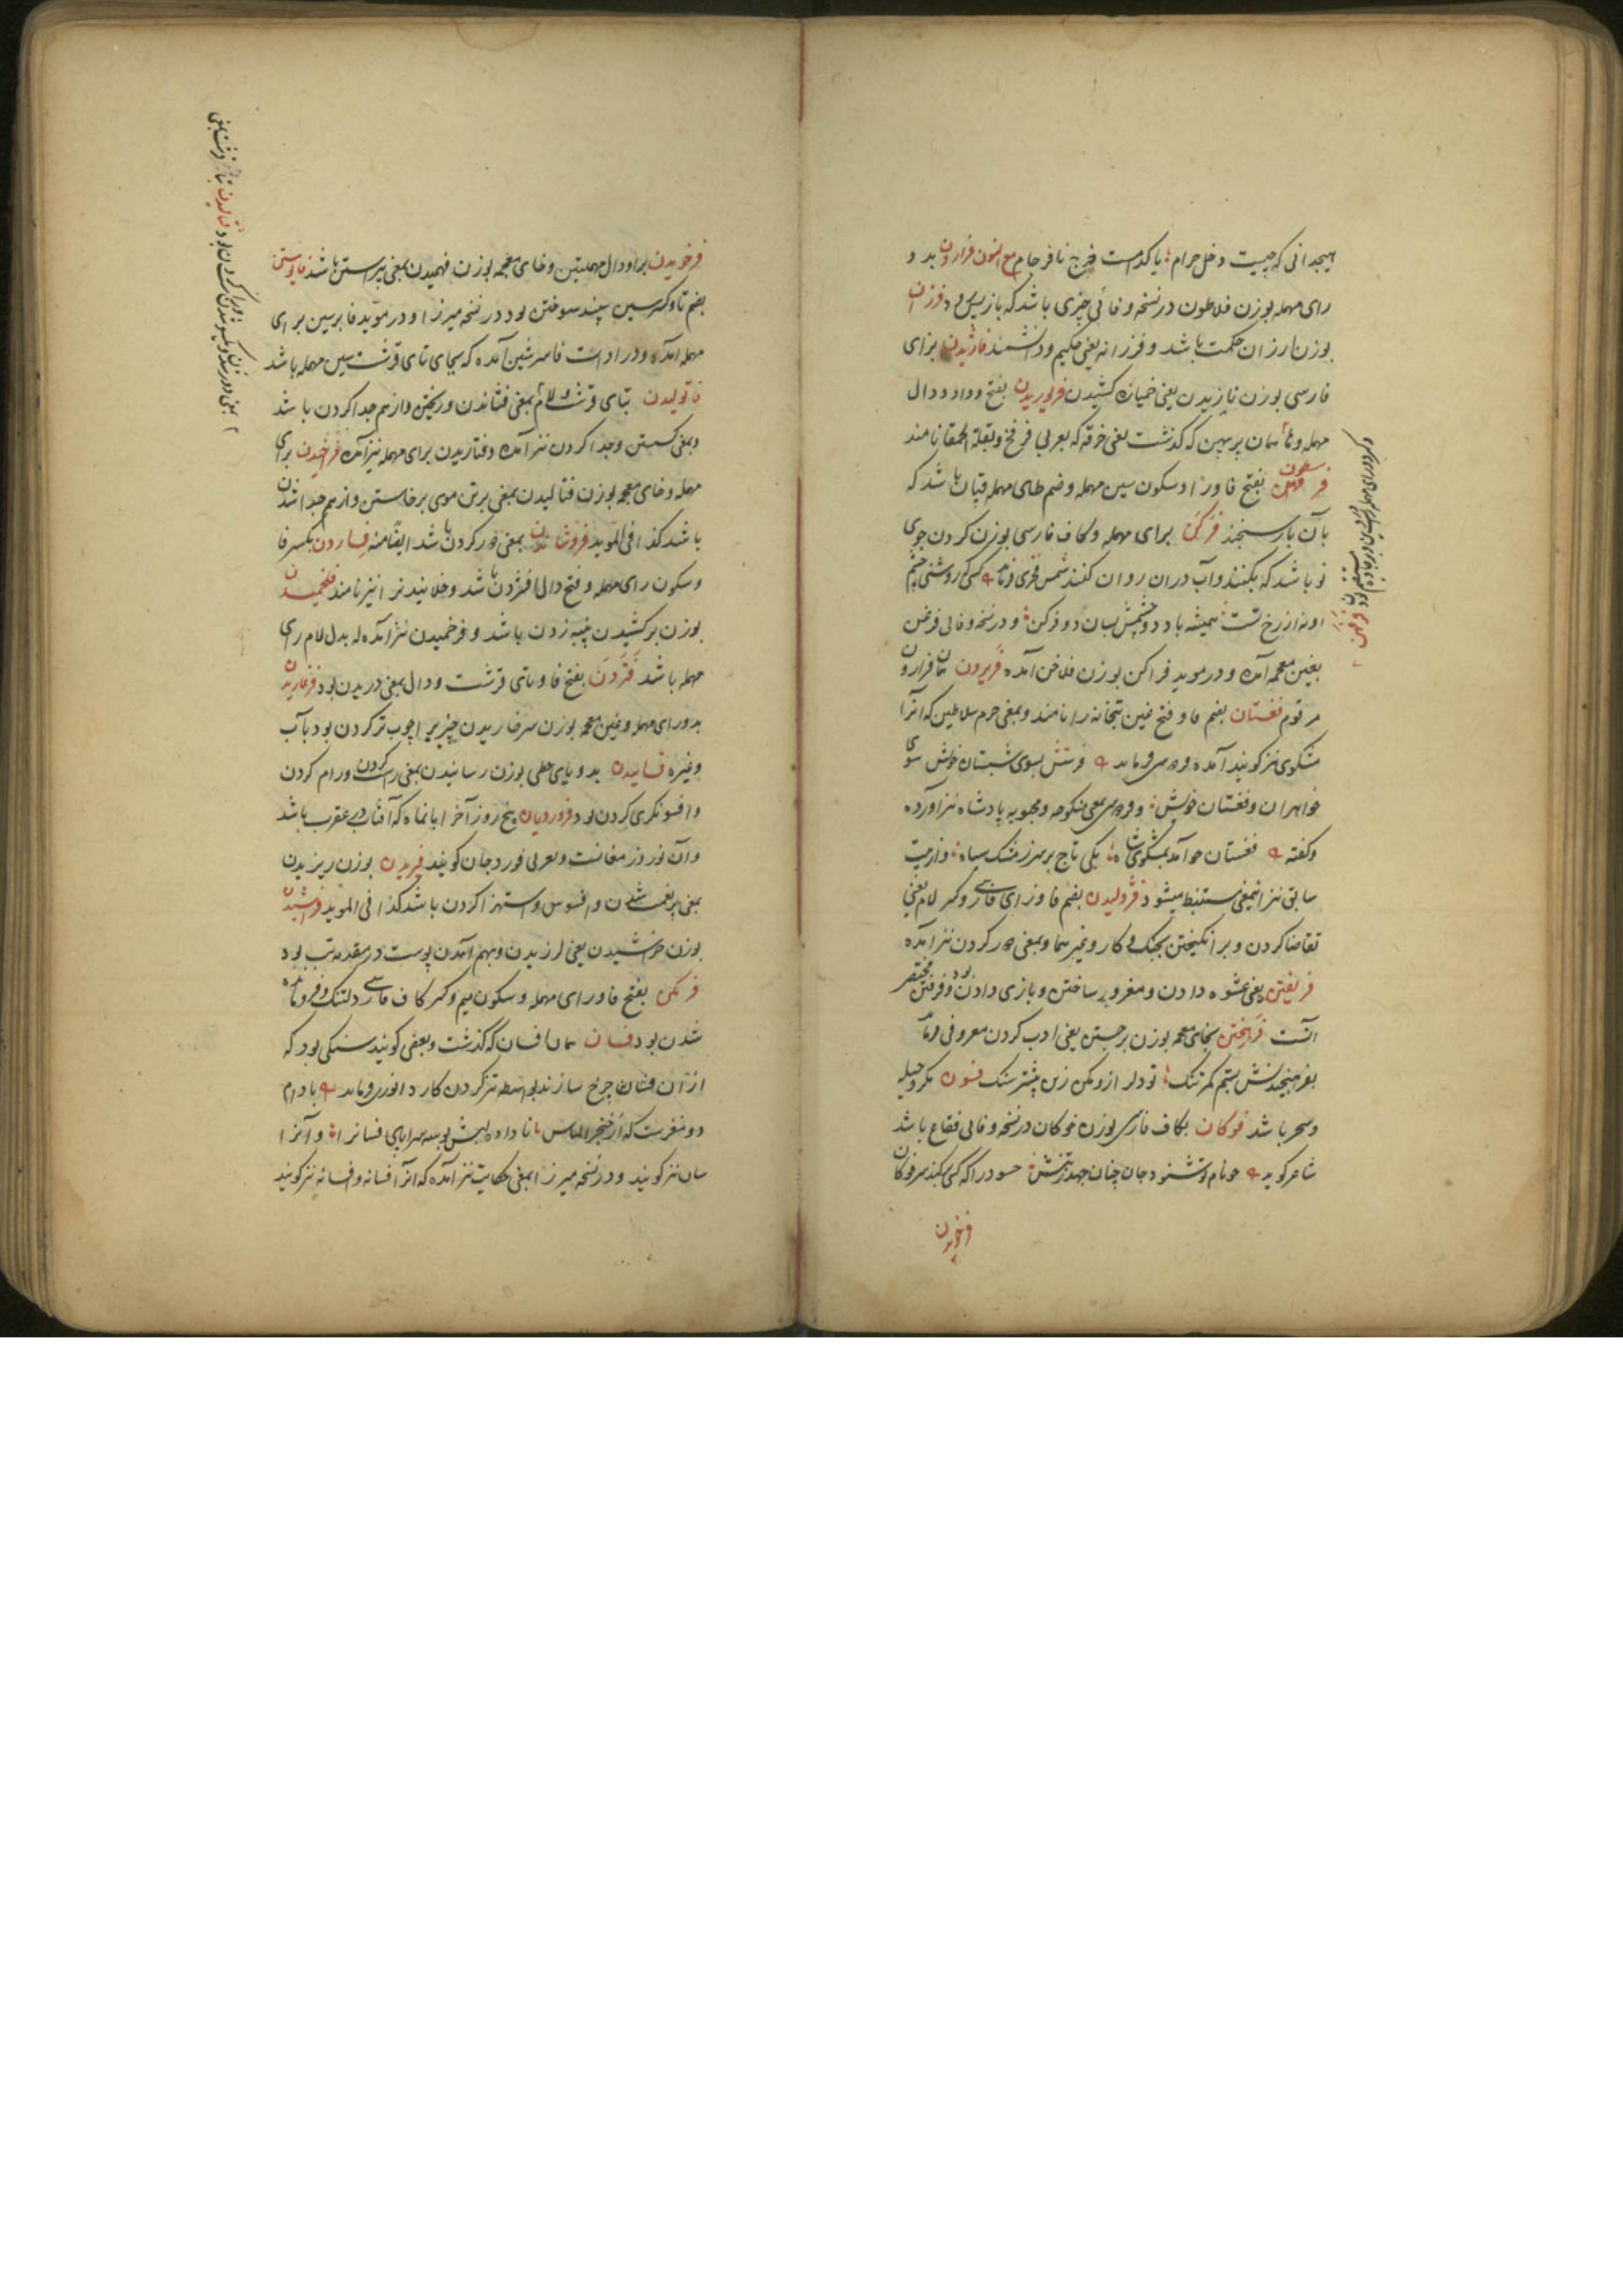 هیچدانی که چیست دخل حرام یا کدامست خرج نافرجام مع النون فرارون بد و
رای مهمله بوزن فلاطون در نسخه وفائی چیزی باشد که باز پس رود فرزان
بوزن ارزان حکمت باشد و فرزانه یعنی حکیم و دانشمند فاژیدن بزای
فارسی بوزن نازیدن یعنی خمیازه کشیدن فروریدن بفتح و واو و دال
مهمله و تا همان پرپهن که گذشت یعنی خرفه که بعربی فرفخ و بقلة الحمقا نامند
فرسطون بفتح فا و را و سکون سین مهمله و ضم طای مهمله قپان باشد که
بآن بار سنجند فرکن برای مهمله و کاف فارسی بوزن کردن جوی
نو باشد که بکنند و آب دران روان کنند شمس فخری فرماید کسی که روشنی چشم
او نه از رخ تست همیشه باد دو چشمش بسان دو فرکن و در نسخه وفائی فرغن
بغین معجمه آمده و در موید فراکن بوزن فلاخن آمده فریرون همان فرارون
مرقوم فغستان بضم فا و فتح غین بتخانه را نامند و بمعنی حرم سلاطین که آنرا
مشکوی نیز گویند آمده فردوسی فرماید فرستش بسوی شبستان خویش سوی
خواهران و فغستان خویش و فردوسی بمعنی منکوحه و محبوبه پادشاه نیز آورده
و گفته فغستان چو آمد بمشکوی شاه یکی تاج بر سر ز مشک سیاه و از بیت
سابق نیز اینمعنی مستنبط میشود فژولیدن بضم فا و زای فارسی و کسر لام یعنی
تقاضا کردن و برانگیختن بجنگ و کار و غیرهما و بمعنی دور کردن نیز آمده
فریفتن یعنی عشوه دادن و مغرور ساختن و بازی دادن بود و فرفتن مختصر
آنست فرهیختن بخای معجمه بوزن برجستن یعنی ادب کردن معروفی فرماید
بفرهیجندش بستم کمر تنگ تو دلر ازو مکن زین بیشتر سنگ فسون مکر و حیله
و سحر باشد فوکان بکاف فارسی بوزن خوکان در نسخه وفائی فقاع باشد
شاعر گوید چو نام تو شنود جان چنان جهد ز تنش حسود را که کسی برکند سر فوکان
فرخویدن
فرخویدن برا و دال مهملتین و خای معجمه بوزن فهمیدن بمعنی پیراستن باشد فاتوستن
بضم تا و کسر سین سپند سوختن بود در نسخه میرزا و در موید فابرسین برای
مهمله آمده و در ادات فاسرشین آمده که بجای تای قرشت سین مهمله باشد
فاتولیدن بتای قرشت و لام بمعنی فشاندن و ریختن و از هم جدا کردن باشد
و بمعنی گسستن و جدا کردن نیز آمده و فتاریدن برای مهمله نیز آمده فراخیدن برای
مهمله و خای معجمه بوزن فتالیدن بمعنی برتن موی برخاستن و از هم جدا شدن
باشد کذا فی الموید فروشاندن بمعنی دور کردن باشد ایضا منه فساردن بکسر فا
و سکون رای مهمله و فتح دال افشردن باشد و خلانیدنرا نیز نامند فلخمیدن
بوزن برکشیدن پنبه زدن باشد و فرخمیدن نیز آمده که بدل لام رای
مهمله باشد فتردن بفتح فا و تای قرشت و دال بمعنی دریدن بود فرغاریدن
بد و رای مهمله و غین معجمه بوزن سرخاریدن چیزیرا خوب تر کردن بود بآب
و غیره فسانیدن بد و یای حطی بوزن رسانیدن بمعنی راست کردن و رام کردن
و افسونگری کردن بود فروردیان پنج روز آخر ابانماه که آفتاب در عقرب باشد
و آن نوروز مغانست و بعربی فوردجان گویند فریدن بوزن رریدن
بمعنی بر بغست شدن و افسوس و استهزا کردن باشد کذا فی الموید فراشیدن
بوزن خراشیدن یعنی لرزیدن و بهم آمدن پوست در مقدمه تب بود
فرمکن بفتح فا و رای مهمله و سکون میم و کسر کاف فارسی دلتنگ و فرومانده
شدن بود فسان همان افسان که گذشت و بعضی گویند سنگی بود که
از آن فشان چرخ سازند بواسطه تیز کردن کارد انوری فرماید بادام
دو مغزست که از خنجر الماس نا داده لبش بوسه سراپای فسانرا و آنرا
سان نیز گویند و در نسخه میرزا بمعنی حکایت نیز آمده که آنرا فسانه و افسانه نیز گویند